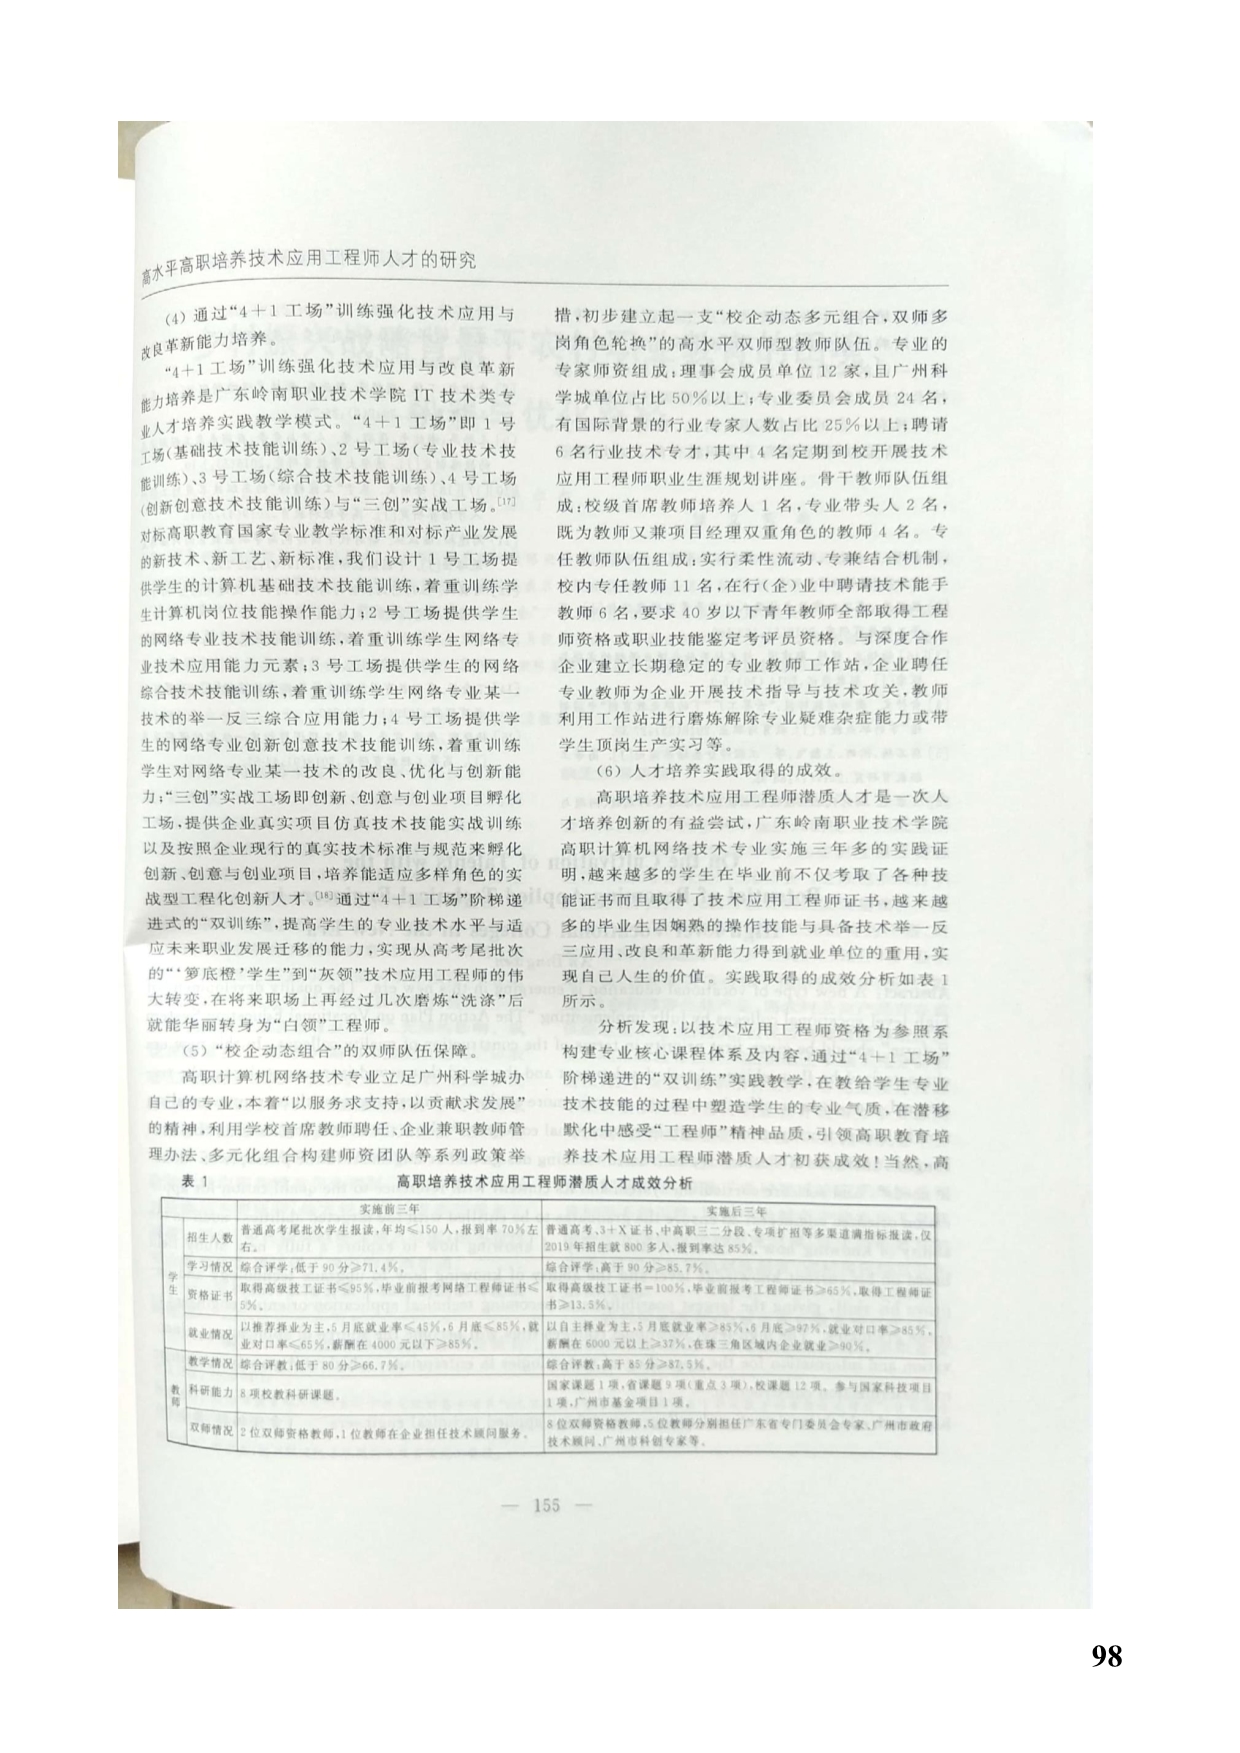 高水平高职培养技术应用工程师人才的研究
(4) 通过“4＋1 工场”训练强化技术应用与
改良革新能力培养。
“4＋1 工场”训练强化技术应用与改良革新
能力培养是广东岭南职业技术学院 IT 技术类专
业人才培养实践教学模式。“4＋1 工场”即 1 号
工场(基础技术技能训练)、2 号工场(专业技术技
能训练)、3 号工场(综合技术技能训练)、4 号工场
(创新创意技术技能训练)与“三创”实战工场。[17]
对标高职教育国家专业教学标准和对标产业发展
的新技术、新工艺、新标准,我们设计 1 号工场提
供学生的计算机基础技术技能训练,着重训练学
生计算机岗位技能操作能力;2 号工场提供学生
的网络专业技术技能训练,着重训练学生网络专
业技术应用能力元素;3 号工场提供学生的网络
综合技术技能训练,着重训练学生网络专业某一
技术的举一反三综合应用能力;4 号工场提供学
生的网络专业创新创意技术技能训练,着重训练
学生对网络专业某一技术的改良、优化与创新能
力;“三创”实战工场即创新、创意与创业项目孵化
工场,提供企业真实项目仿真技术技能实战训练
以及按照企业现行的真实技术标准与规范来孵化
创新、创意与创业项目,培养能适应多样角色的实
战型工程化创新人才。[18] 通过“4＋1 工场”阶梯递
进式的“双训练”,提高学生的专业技术水平与适
应未来职业发展迁移的能力,实现从高考尾批次
的“‘箩底橙’学生”到“灰领”技术应用工程师的伟
大转变,在将来职场上再经过几次磨炼“洗涤”后
就能华丽转身为“白领”工程师。
(5) “校企动态组合”的双师队伍保障。
高职计算机网络技术专业立足广州科学城办
自己的专业,本着“以服务求支持,以贡献求发展”
的精神,利用学校首席教师聘任、企业兼职教师管
理办法、多元化组合构建师资团队等系列政策举
措,初步建立起一支“校企动态多元组合,双师多
岗角色轮换”的高水平双师型教师队伍。专业的
专家师资组成:理事会成员单位 12 家,且广州科
学城单位占比 50％以上;专业委员会成员 24 名,
有国际背景的行业专家人数占比 25％以上;聘请
6 名行业技术专才,其中 4 名定期到校开展技术
应用工程师职业生涯规划讲座。骨干教师队伍组
成:校级首席教师培养人 1 名,专业带头人 2 名,
既为教师又兼项目经理双重角色的教师 4 名。专
任教师队伍组成:实行柔性流动、专兼结合机制,
校内专任教师 11 名,在行(企)业中聘请技术能手
教师 6 名,要求 40 岁以下青年教师全部取得工程
师资格或职业技能鉴定考评员资格。与深度合作
企业建立长期稳定的专业教师工作站,企业聘任
专业教师为企业开展技术指导与技术攻关,教师
利用工作站进行磨炼解除专业疑难杂症能力或带
学生顶岗生产实习等。
(6) 人才培养实践取得的成效。
高职培养技术应用工程师潜质人才是一次人
才培养创新的有益尝试,广东岭南职业技术学院
高职计算机网络技术专业实施三年多的实践证
明,越来越多的学生在毕业前不仅考取了各种技
能证书而且取得了技术应用工程师证书,越来越
多的毕业生因娴熟的操作技能与具备技术举一反
三应用、改良和革新能力得到就业单位的重用,实
现自己人生的价值。实践取得的成效分析如表 1
所示。
分析发现:以技术应用工程师资格为参照系
构建专业核心课程体系及内容,通过“4＋1 工场”
阶梯递进的“双训练”实践教学,在教给学生专业
技术技能的过程中塑造学生的专业气质,在潜移
默化中感受“工程师”精神品质,引领高职教育培
养技术应用工程师潜质人才初获成效!当然,高
表 1 高职培养技术应用工程师潜质人才成效分析
实施前三年 实施后三年
学生
招生人数 普通高考尾批次学生报读,年均≤150 人,报到率 70％左
右。
普通高考、3＋X 证书、中高职三二分段、专项扩招等多渠道满指标报读,仅
2019 年招生就 800 多人,报到率达 85％。
学习情况 综合评学:低于 90 分≥71.4％。 综合评学:高于 90 分≥85.7％。
资格证书 取得高级技工证书≤95％,毕业前报考网络工程师证书≤
5％。
取得高级技工证书＝100％,毕业前报考工程师证书≥65％,取得工程师证
书≥13.5％。
就业情况 以推荐择业为主,5 月底就业率≤45％,6 月底≤85％,就
业对口率≤65％,薪酬在 4000 元以下≥85％。
以自主择业为主,5 月底就业率≥85％,6 月底≥97％,就业对口率≥85％,
薪酬在 6000 元以上≥37％,在珠三角区域内企业就业≥90％。
教师
教学情况 综合评教:低于 80 分≥66.7％。 综合评教:高于 85 分≥87.5％。
科研能力 8 项校教科研课题。
国家课题 1 项,省课题 9 项(重点 3 项),校课题 12 项。参与国家科技项目
1 项,广州市基金项目 1 项。
双师情况 2 位双师资格教师,1 位教师在企业担任技术顾问服务。
8 位双师资格教师,5 位教师分别担任广东省专门委员会专家、广州市政府
技术顾问、广州市科创专家等。
— 155 —
98